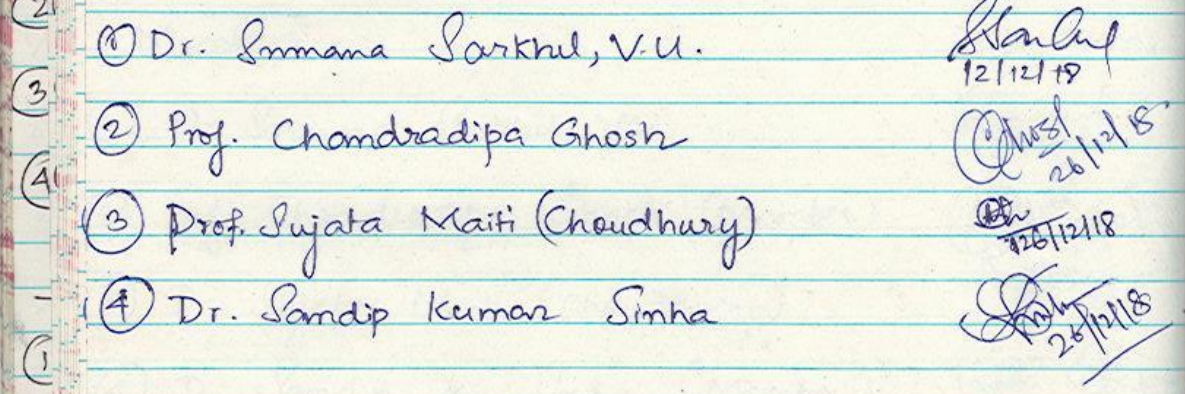 ① Dr. Sumana Sarkhel, V.U.
12/12/18
② Prof. Chandradipa Ghosh
Ghosh 26/12/18
③ Prof. Sujata Maiti (Choudhury)
26/12/18
④ Dr. Sandip Kumar Sinha
26/12/18